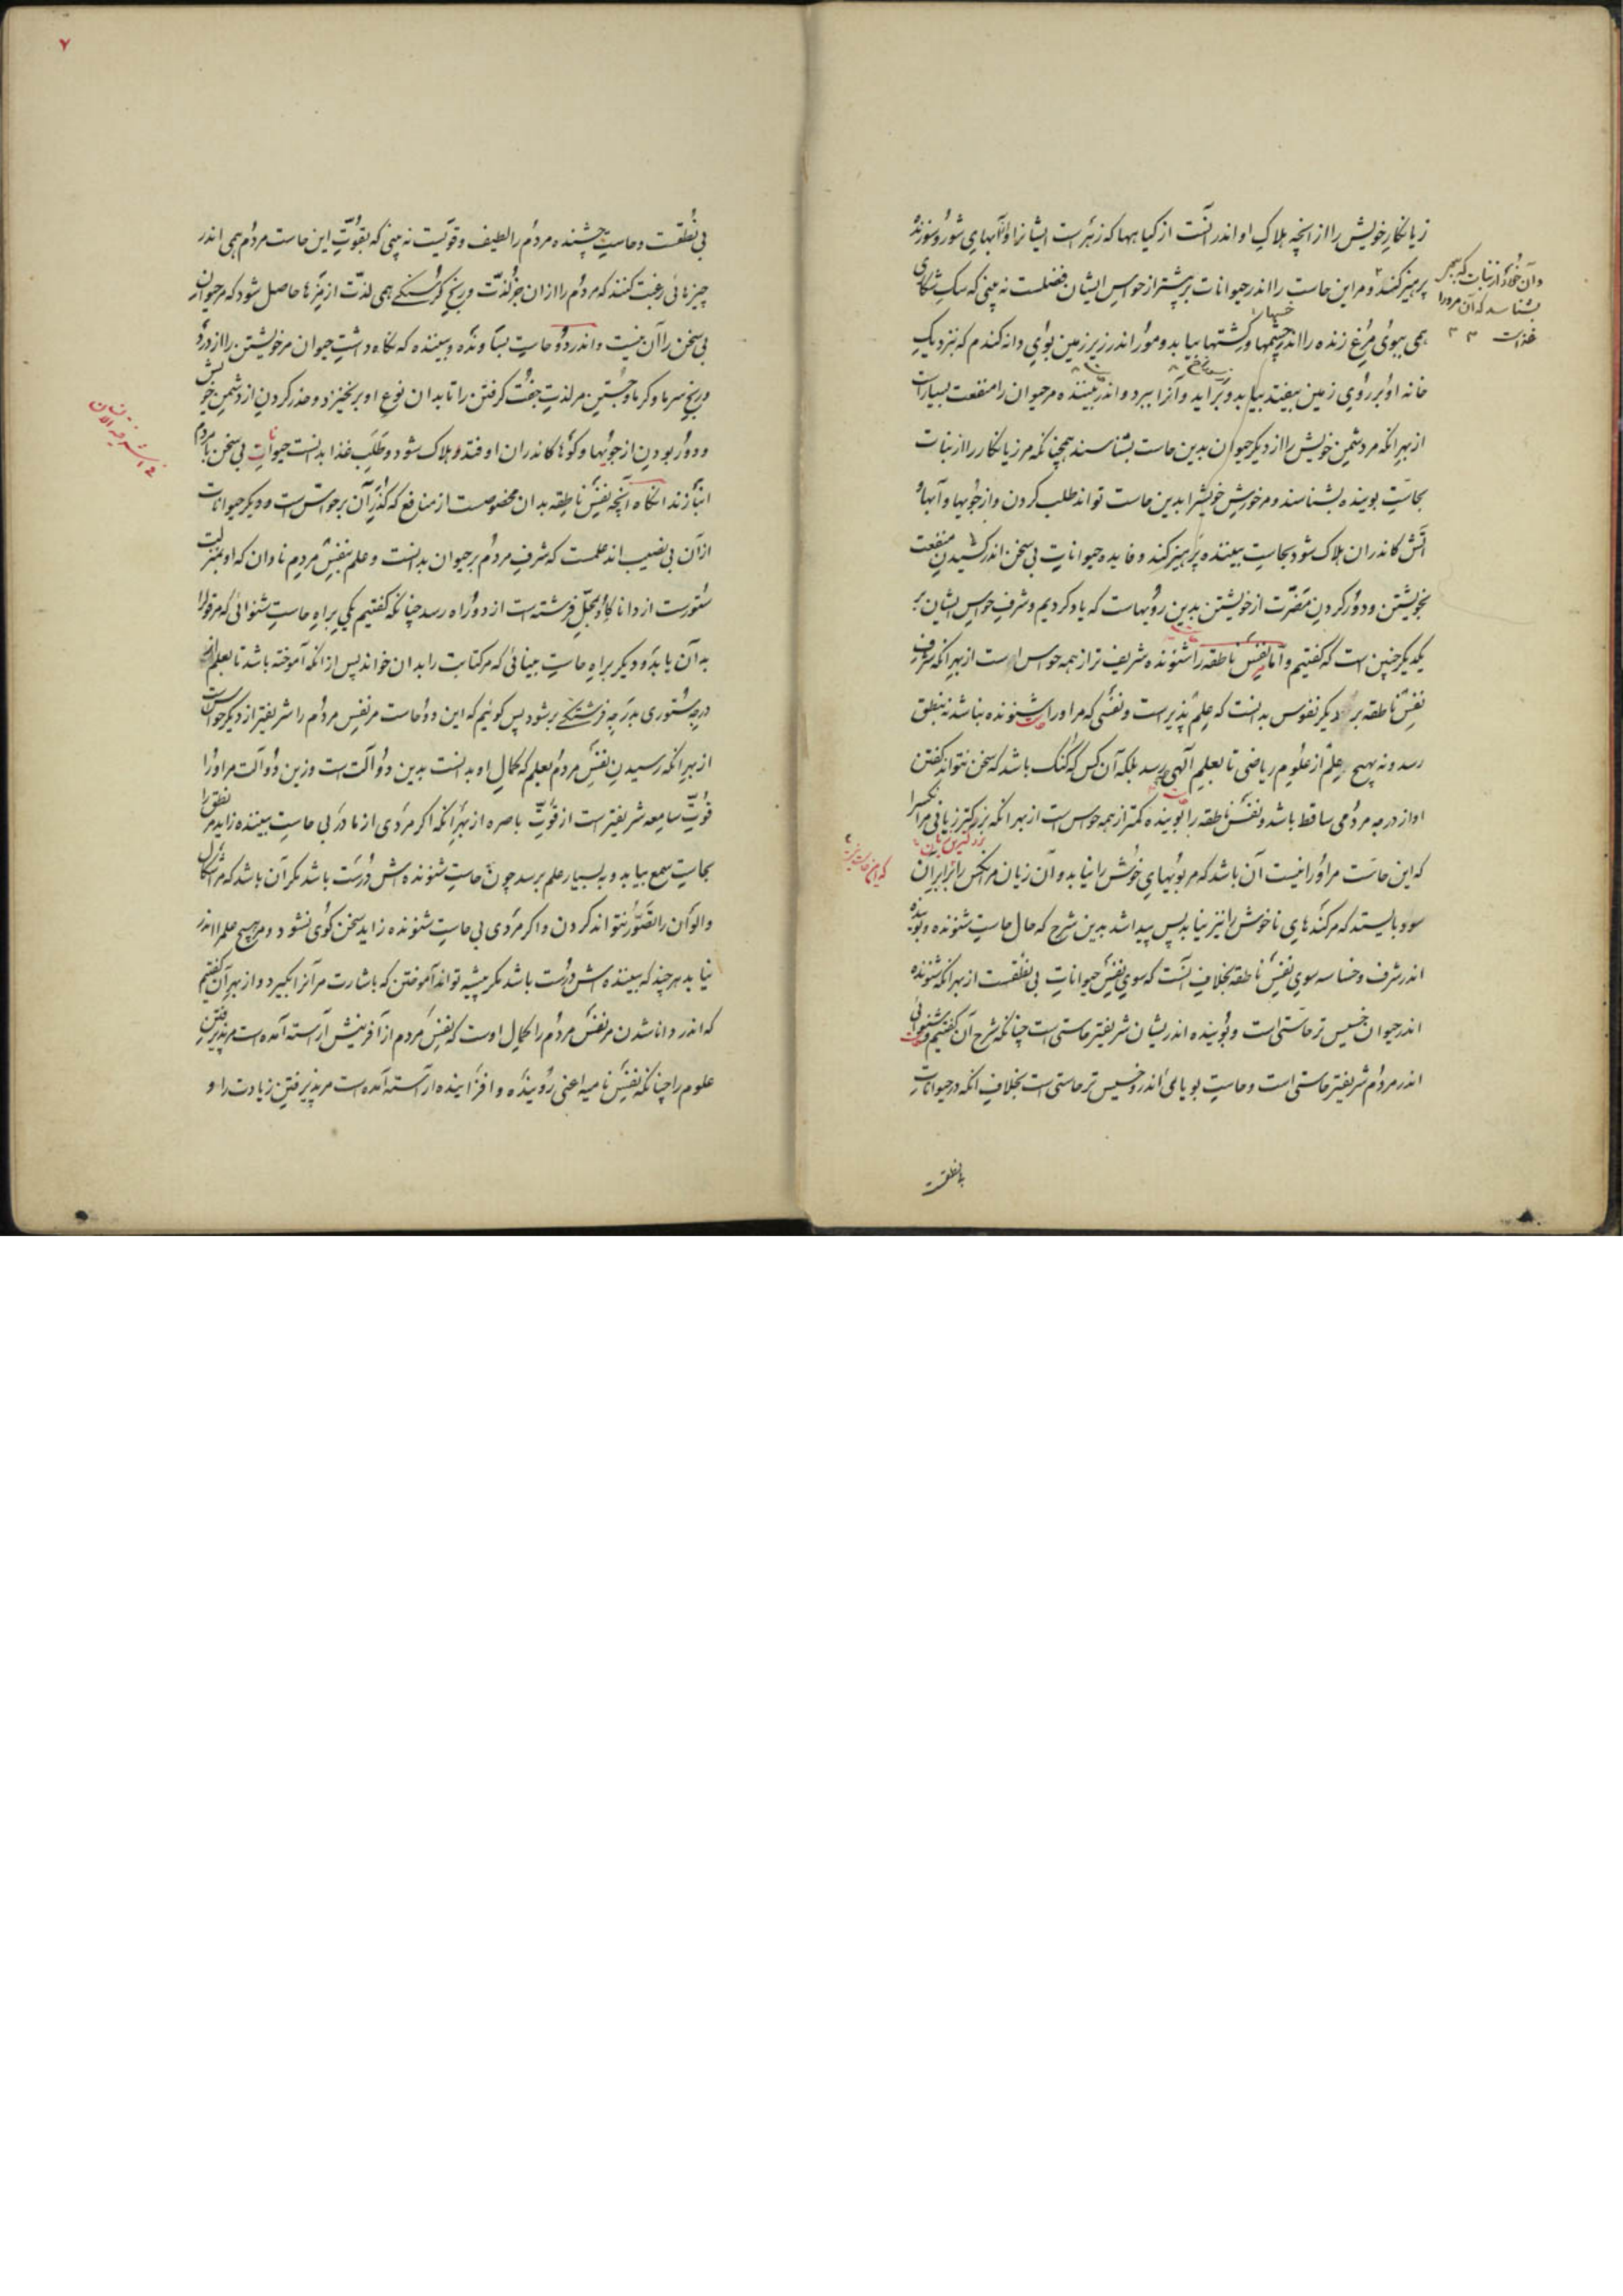 زیانکار خویش را از انچه هلاک او اندر آنست از کیاهها که زهرست ایشانرا و از آبهای شور و شورنده
پرهیز کند و مر این حاست را اندر حیوانات بر بیشتر از حواس ایشان فضلست نه بینی که سک شکاری
همی ببوی مرغ زنده را اندر چشمها و رکشتها بیابد و مور اندر زیر زمین بوی دانه کندم که بنزدیک
خانه او بر روی زمین بیفتد بیابد و برآید و آنرا ببرد و اندر بیننده مر حیوان را منفعت بسیارست
از بهر انکه مر دشمن خویش را از دیکر حیوان بدین حاست بشناسند همچنانکه مر زیانکار را از نبات
بحاست بوینده بشناسند و مر خورش خویش را بدین حاست تواند طلب کردن و از جویها و آبها و
آتش کاندران هلاک شود بحاست بیننده پرهیز کند و فایده حیوانات بی سخن اندر کشیدن منفعت
بخویشتن و دور کردن مضرت از خویشتن بدین رویهاست که یاد کردیم و شرف حواس ایشان بر
یکدیکر چنین است که کفتیم و اما نفس ناطقه را شنونده شریف تر از همه حواس است از بهر انکه شرف
نفس ناطقه بر دیکر نفوس بدانست که علم پذیر است و نفسی که مر او را شنونده نباشد نه بنطق
رسد و نه بهیچ علم از علوم ریاضی تا بعلم آلهی رسد بلکه آن کس که کنک باشد که سخن نتواند کفتن
او از درجه مردمی ساقط باشد و نفس ناطقه را بوینده کمتر از همه حواس است از بهر انکه بزرکتر زیانی مر انکس را
که این حاست مر او را نیست آن باشد که مر بویهای خوش را نیابد و آن زیان مر انکس را برابر آن
سود بایستد که مر کندهای ناخوش را نیز نیابد پس پیدا شد بدین شرح که حال حاست شنونده و بوینده
اندر شرف و خساسه سوی نفس ناطقه بخلاف آنست که سوی نفس حیوانات بی نطقست از بهر انکه شنونده
اندر حیوان خسیس تر حاستی است و بوینده اندریشان شریفتر حاستی است چنانکه شرح آن کفتیم و شنوائی
اندر مردم شریفتر حاستی است و حاست بویائی اندرو خسیس تر حاستی است بخلاف انکه در حیوانات
بی نطقست
وآن خورد از نبات که ببصر
بشناسد که آن مر او را
غذاست
۷
بی نطقست و حاست چشنده مردم را لطیف و قویست نه بینی که بقوت این حاست مردم همی اندر
چیزهائی رغبت کنند که مردم را از ان جز لذت و رنج کرسنکی همی لذت از چیزها حاصل شود که مر حیوان
بی سخن را آن نیست و اندر دو حاست بساونده و بیننده که نکاه داشت حیوان مر خویشتن را از درد
و رنج سرما و کرما و جستن مر لذت جفت کرفتن را تا بدان نوع او برنخیزد و حذر کردن از دشمن خویش
و دور بودن از جویها و کوها کاندران اوفتد و هلاک شود و طلب غذا بدانست حیوانات بی سخن با مردم
انبازند انکاه آنچه نفس ناطقه بدان مخصوصست از منافع که کذر آن بر حواس است و دیکر حیوانات
از آن بی نصیب اند علمست که شرف مردم بر حیوان بدانست و علم بنفس مردم نادان که او بمنزلت
ستورست از دانا کاو بمحل فرشته است از دو راه رسد چنانکه کفتیم یکی براه حاست شنوائی که مر قول را
به آن یابد و دیکر براه حاست بینائی که مر کتابت را بدان خواند پس از انکه آموخته باشد تا بعلم از
درجه ستوری بدرجه فرشتکی بر شود پس کوئیم که این دو حاست مر نفس مردم را شریفتر از دیکر حواس است
از بهر انکه رسیدن نفس مردم بعلم که کمال او بدانست بدین دو آلت است و زین دو آلت مر او را
قوت سامعه شریفتر است از قوت باصره از بهر انکه اکر مردی از مادر بی حاست بیننده زاید مر نطق را
بحاست سمع بیابد و به بسیار علم برسد چون حاست شنونده ش درست باشد مکر آن باشد که مر اشکال
و الوان را تصور نتواند کردن و اکر مردی بی حاست شنونده زاید سخن کوی نشود و مر هیچ علم را اندر
نیابد هر چند که بیننده ش درست باشد مکر پیشه تواند آموختن که باشارت مر آنرا بکیرد و از بهر آن کفتیم
که اندر دانا شدن مر نفس مردم را کمال اوست که نفس مردم از آفرینش آراسته آمده است مر پذیرفتن
علوم را چنانکه نفس نامیه اعنی روینده و افزاینده آراسته آمده است مر پذیرفتن زیادت را و